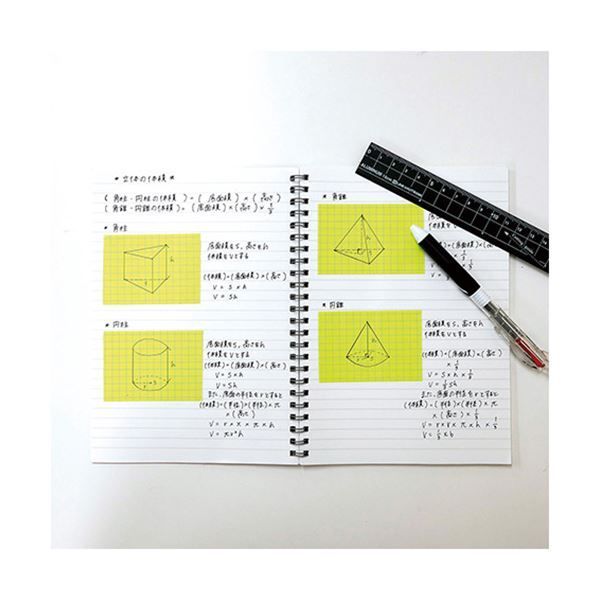 * 立体の体積 *
( 角柱・円柱の体積 ) = ( 底面積 ) × ( 高さ )
( 角錐・円錐の体積 ) = ( 底面積 ) × ( 高さ ) × 1/3
* 角柱
底面積をS, 高さをh
体積をVとする
(体積)=(底面積)×(高さ)
V = S × h
V = Sh
* 円柱
底面積をS, 高さをh
体積をVとする
(体積)=(底面積)×(高さ)
V = S × h
V = Sh
また, 底面の半径をrとすると
(体積)=(半径)×(半径)×π
×(高さ)
V = r × r × π × h
V = πr²h
* 角錐
h
* 円錐
h
(体積)=(底面積)×(高さ)
× 1/3
V = S × h × 1/3
V = 1/3 Sh
また, 底面の半径をrとすると
(体積)=(半径)×(半径)×π
×(高さ)× 1/3
V = r × r × π × h × 1/3